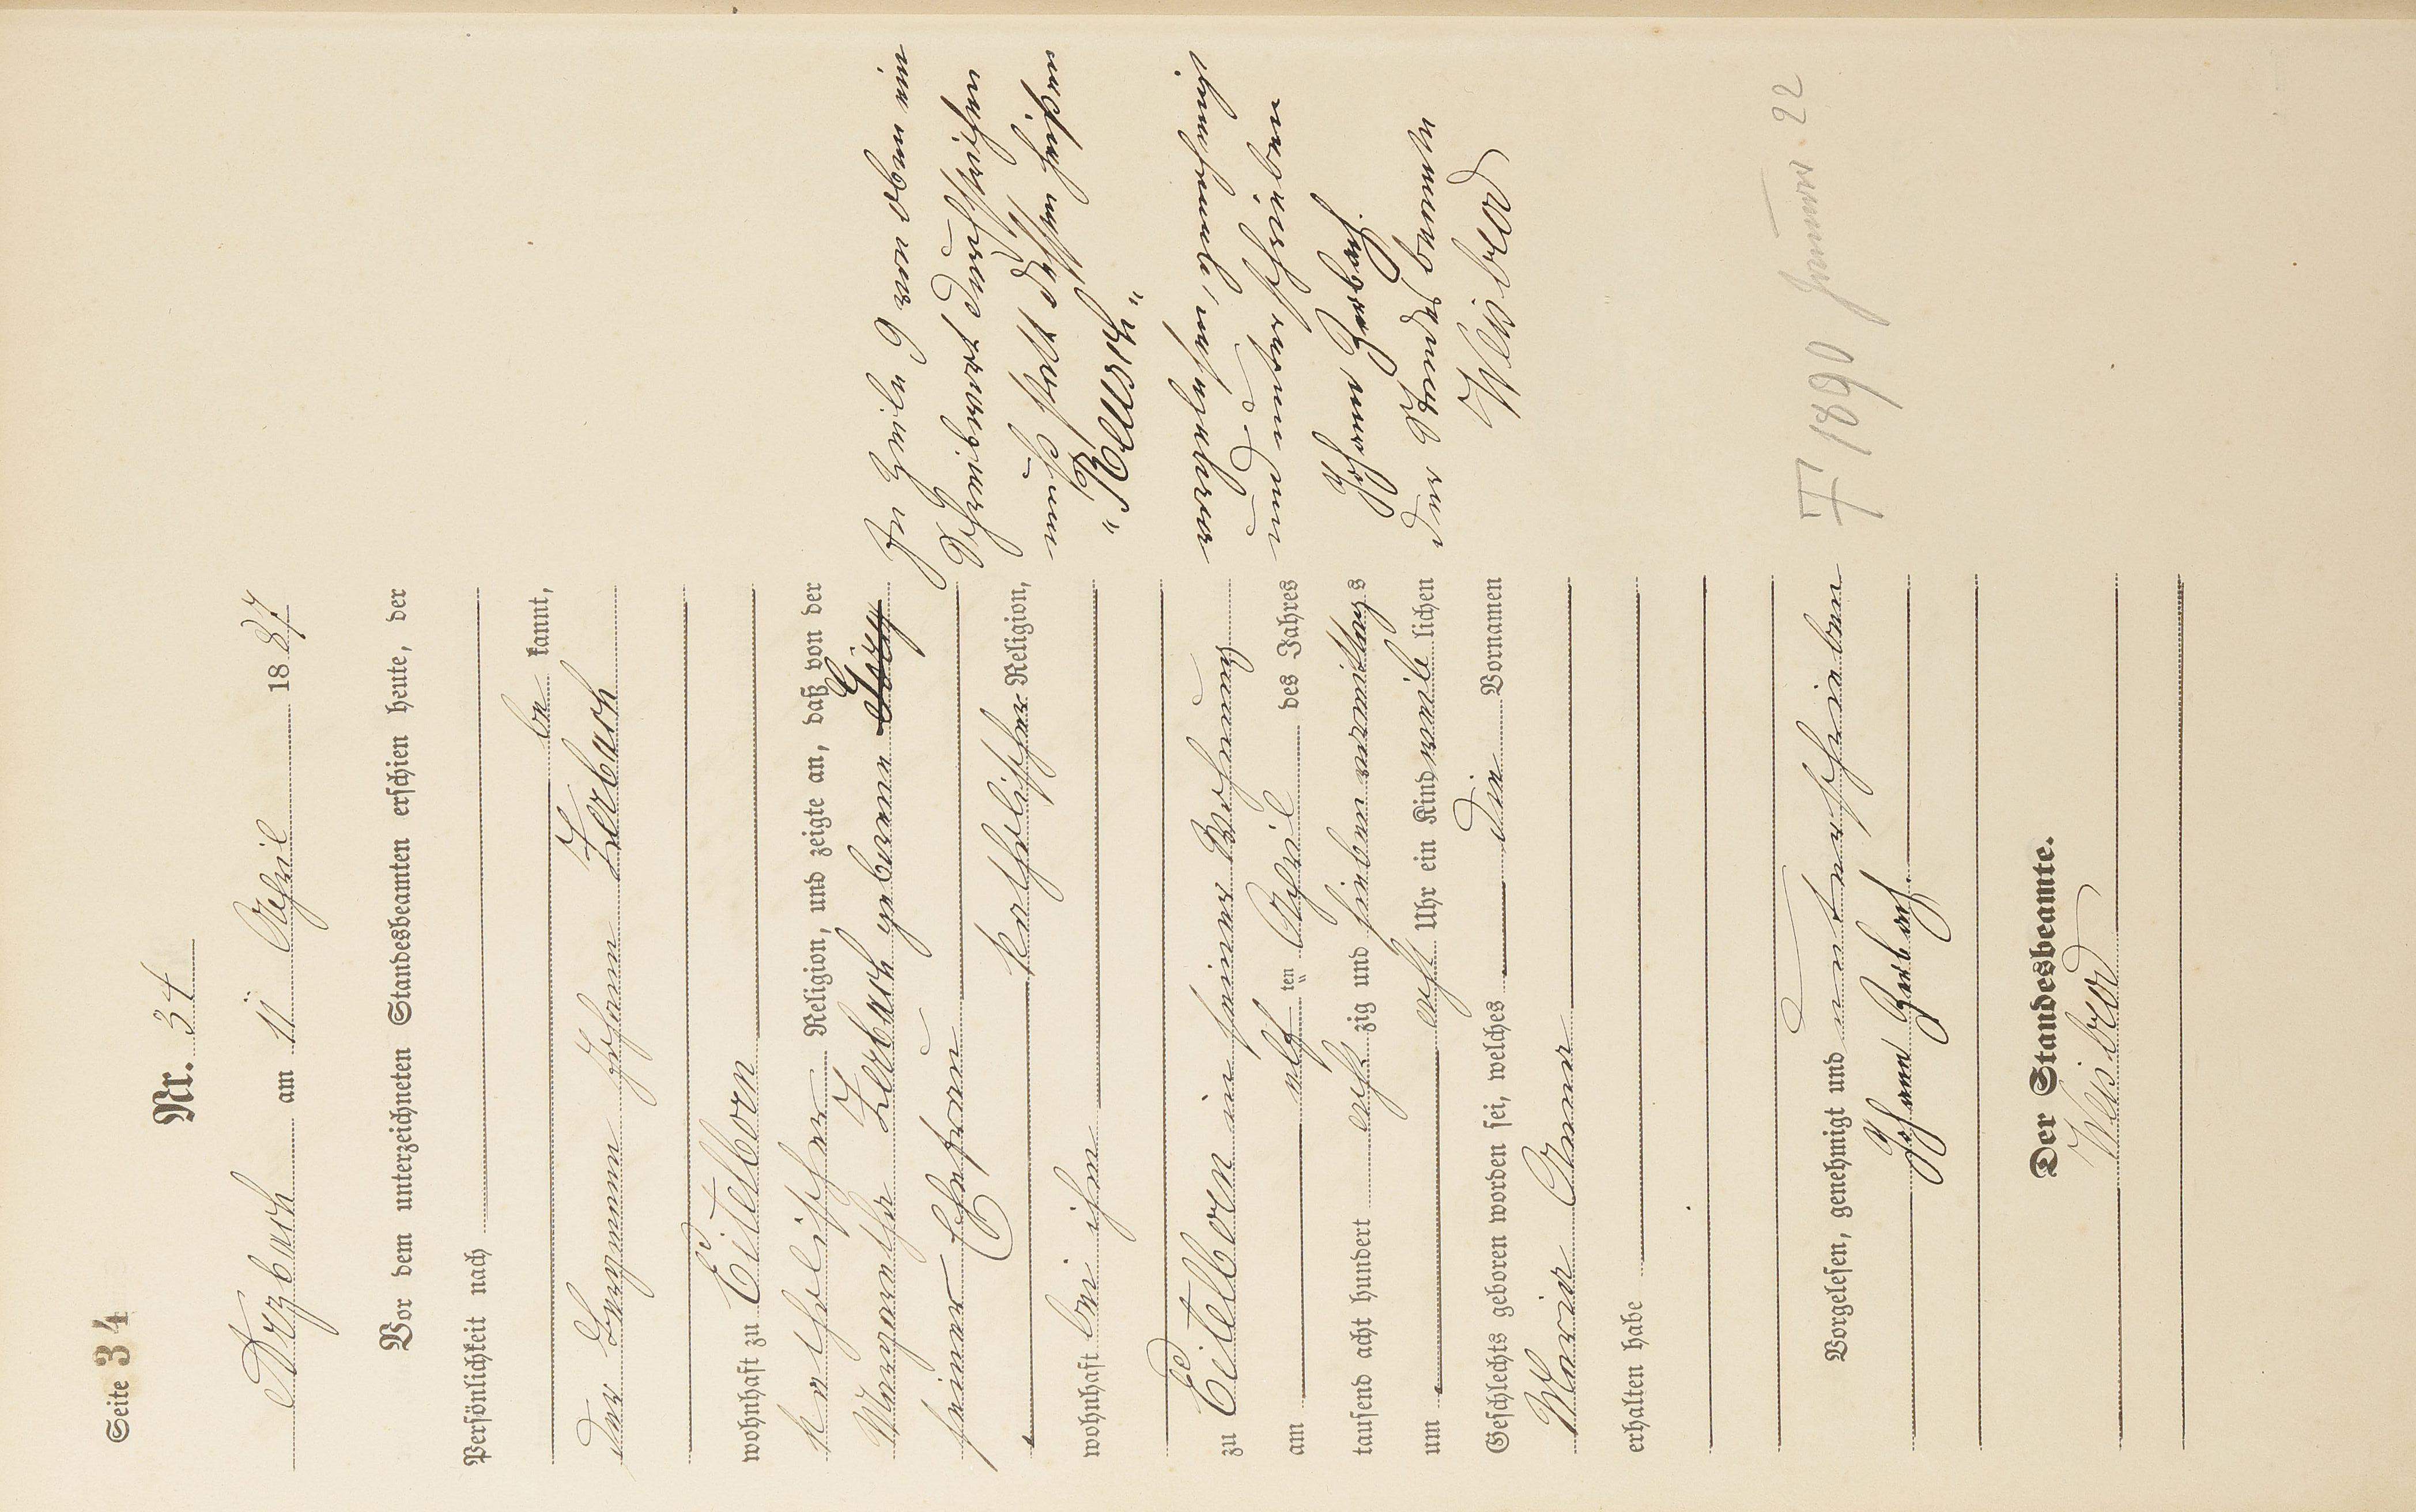 Seite 34
Nr. 34
Arzbach am 11 April 1887
Vor dem unterzeichneten Standesbeamten erschien heute, der
Persönlichkeit nach
be kannt,
der Bergmann Johann Zerbach
wohnhaft zu Eitelborn
katholischer Religion, und zeigte an, daß von der
Margarethe Zerbach geborene
seiner Ehefrau
katholischer Religion,
wohnhaft bei ihm
zu Eitelborn in seiner Wohnung
am elf ten April des Jahres
tausend acht hundert acht zig und sieben vormittags
um acht Uhr ein Kind weib lichen
Geschlechts geboren worden sei, welches die Vornamen
Maria Anna
erhalten habe
Vorgelesen, genehmigt und unterschrieben
Johann Zerbach.
Der Standesbeamte.
Weisbrod
In Zeile 9 von oben ein
Schreibwort durchstrichen
muß statt dessen heißen
"Reusch"
vorgelesen, genehmigt
und unterschrieben
Johann Zerbach.
Der Standesbeamte
Weisbrod
† 1890 Januar 22